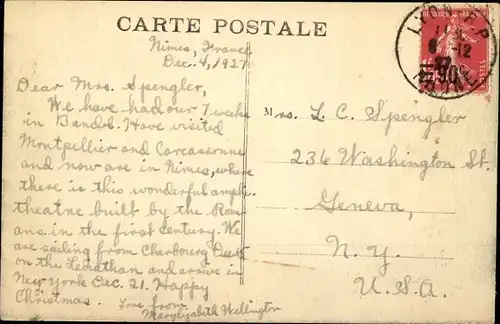 CARTE POSTALE
Nimes, France
Dec. 4, 1927
Dear Mrs. Spengler,
We have had our 7 weeks
in Bandol. Have visited
Montpellier and Carcassonne
and now are in Nimes, where
there is this wonderful amphi-
theatre built by the Rom-
ans in the first century. We
are sailing from Cherbourg Dec. 15
on the Leviathan and arrive in
New York Dec. 21. Happy
Christmas. Love from
Marylizabeth Wellington
Mrs. L. C. Spengler
236 Washington St.
Geneva,
N. Y.
U. S. A.
LYON
-12
27
90
POSTES